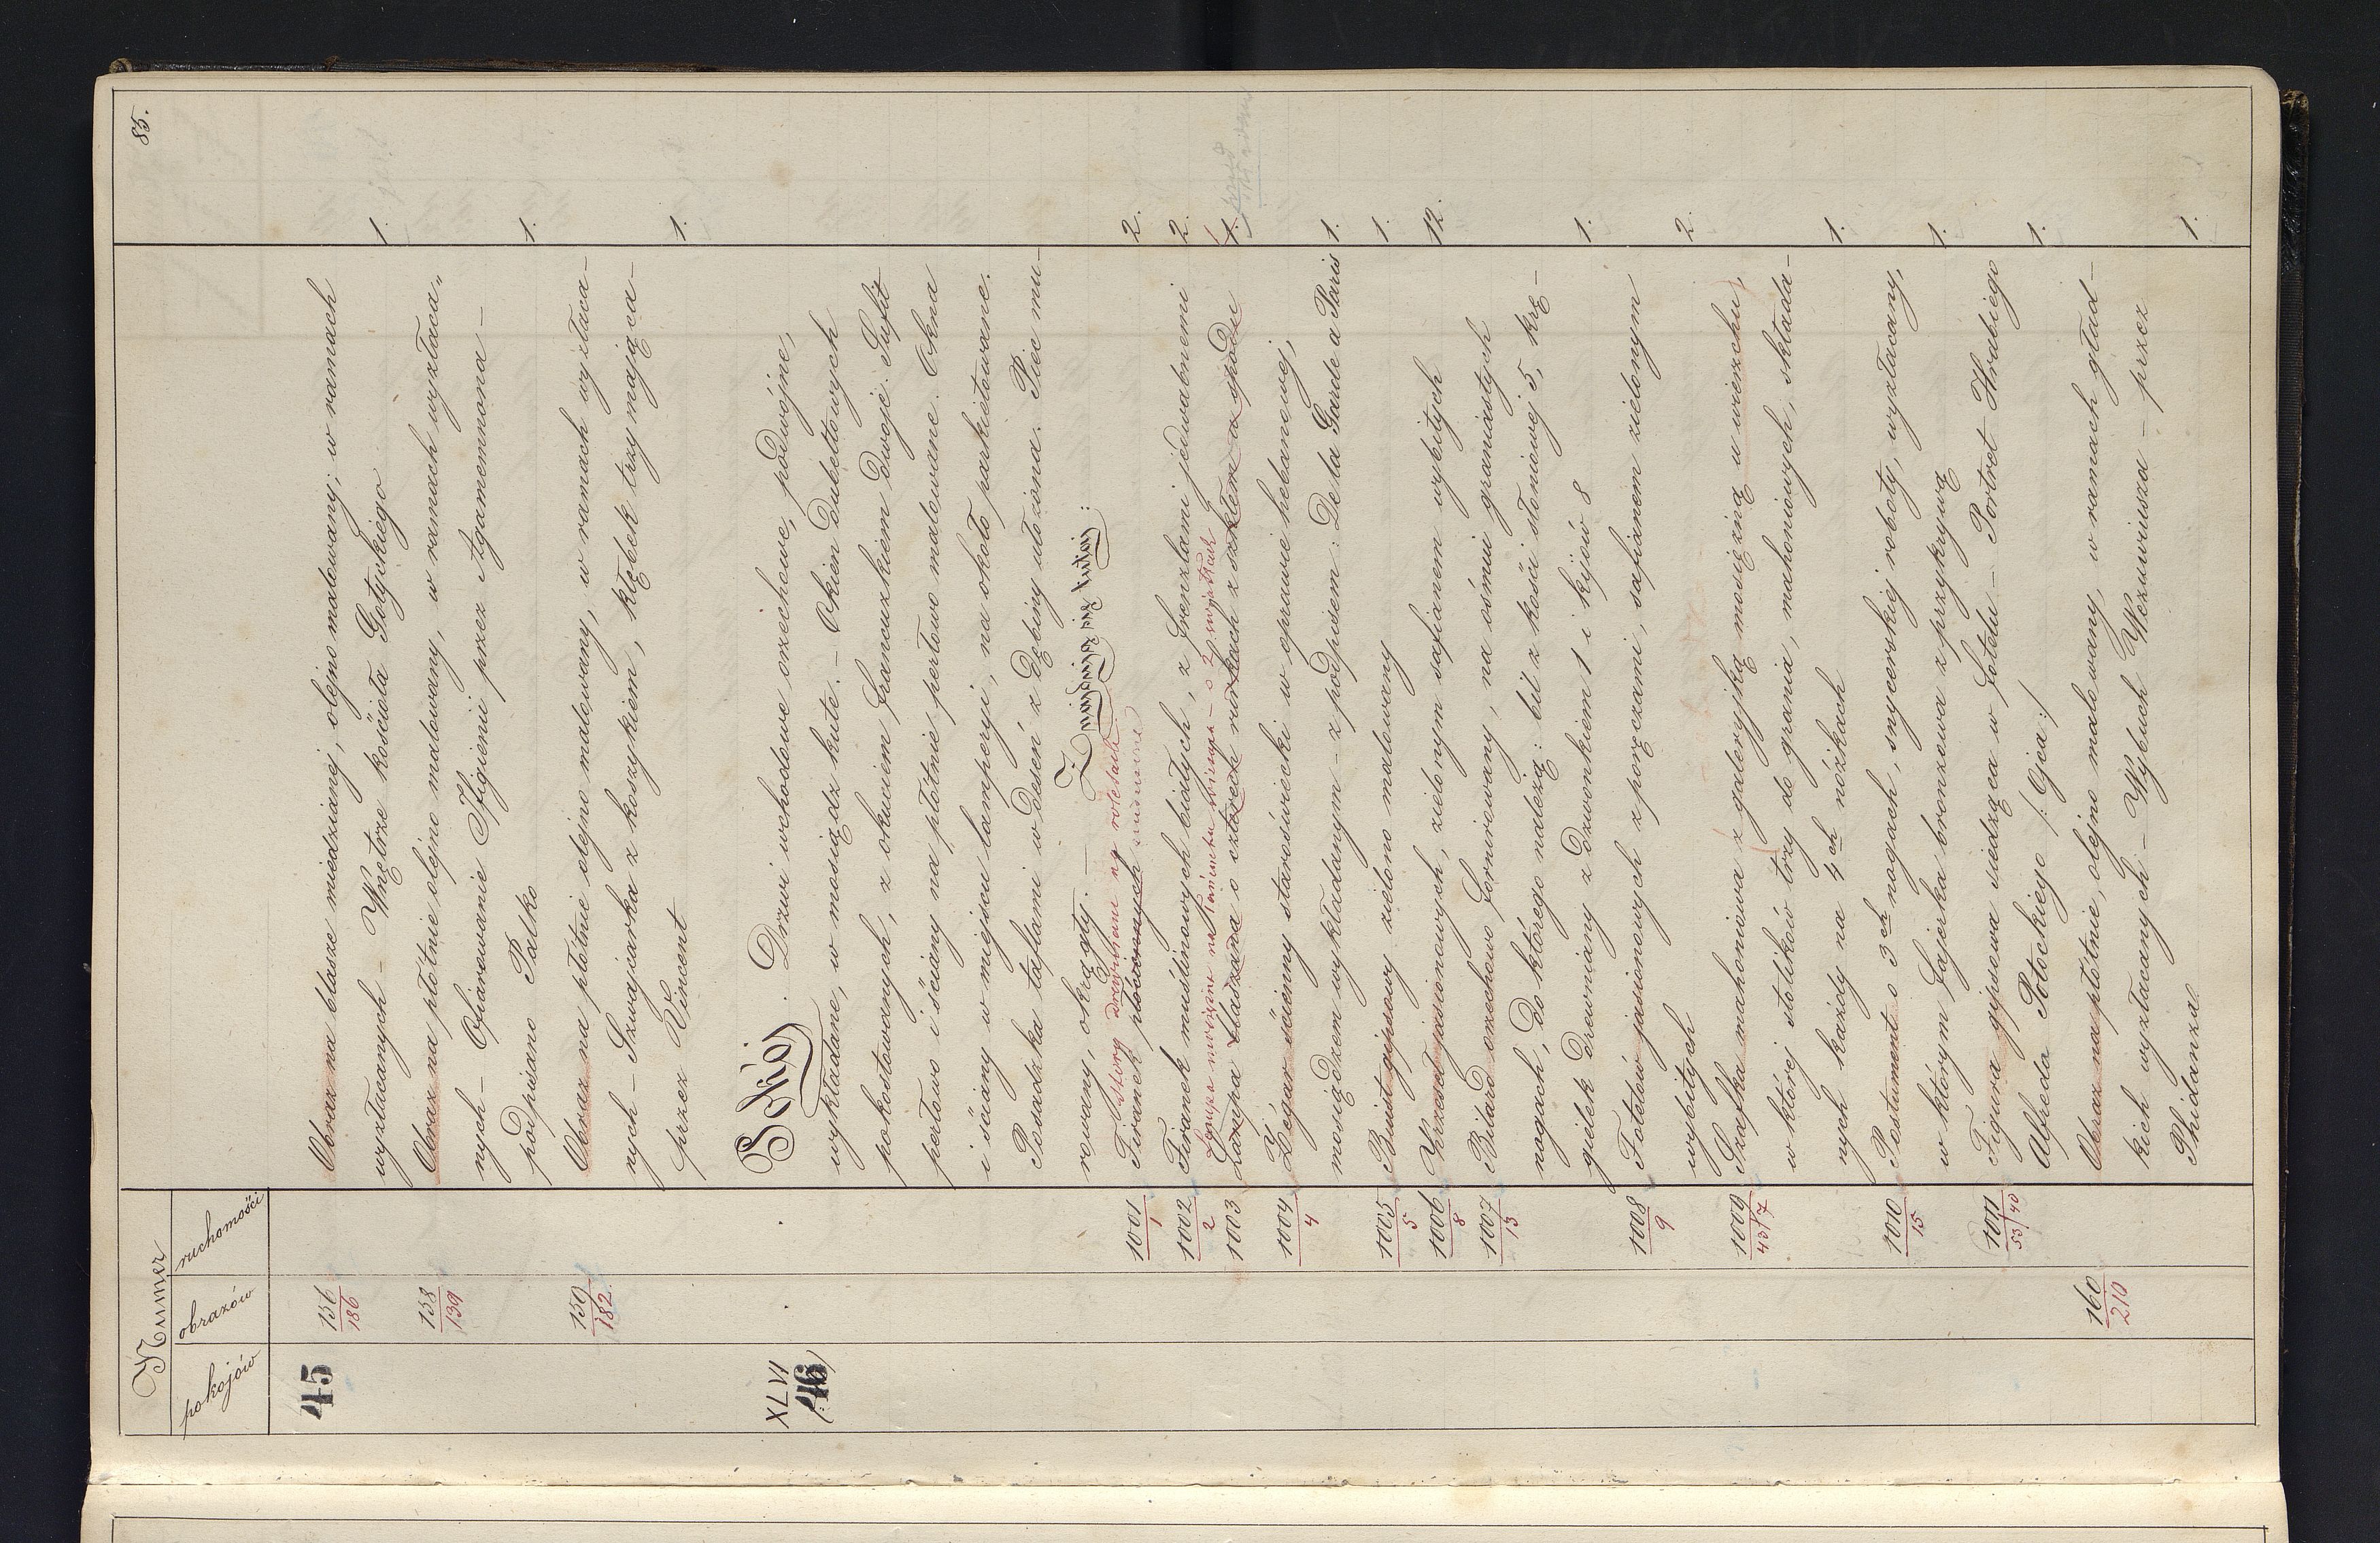 85.
Numer
pokojów obrazów ruchomości
45 156/186 Obraz na blasze miedzianej, olejno malowany, w ramach
wyzłacanych – Wnętrze kościoła Gotyckiego 1.
158/139 Obraz na płótnie olejno malowany, w ramach wyzłaca„
nych – Ofiarowanie Ifigienii przez Agamemnona –
podpisano Palko 1.
159/182 Obraz na płótnie olejno malowany, w ramach wyzłaca–
nych – Szwajcarka z koszykiem, kłębek trzymająca –
przez Vincent 1.
XLVI /:46:/ Pokój. Drzwi wchodowe orzechowe, podwojne,
wykładane, w mosiądz kute. – Okien dubeltowych
pokostowanych, z okuciem francuzkiem dwoje. Sufit
perłowo i ściany na płótnie perłowo malowane. Okna
i ściany w miejscu lamperyi, na około parkietowane.
Posadzka taflami w deseń z dębiny ułożona. Piec mu–
rowany, okrągły. – Znajdują się tutaj:
Story drewniane na roletach
1001/1 Firanek płóciennych 2.
1002/2 Firanek muślinowych białych, z frenzlami jedwabnemi 2.
Lampa mosiężna na łańcuchu wisząca – o 2 knotach
1003 Lampa blaszana o czterech rurkach z szkłem u spodu 1.
1004/4 Zégar ścienny staroświecki w oprawie hebanowej,
mosiądzem wykładanym – z podpisem: De la Garde a Paris 1.
1005/5 Biust gipsowy zielono malowany 1.
1006/8 Krzeseł jasionowych, zielonym safianem wybitych 12.
1007/13 Bilard orzechowo fornirowany, na ośmiu graniastych
nogach, do którego należą: bil z kości słoniowej 5, krę–
gielek drewniany z dzwonkiem 1 i kijów 8 1.
1008/9 Fotelów jasionowych z poręczami, safianem zielonym
wybitych 2.
1009/43/7 Szafka mahoniowa z galeryjką mosiężną u wierzchu,
w której stolików trzy do grania, mahoniowych, składa–
nych każdy na 4ch nóżkach 1.
1010/15 Postument o 3ch nogach, snycerskiej roboty, wyzłacany,
w którym fajerka bronzowa z przykrywą 1.
1011/53/40 Figura gipsowa siedząca w fotelu – Portret Hrabiego
Alfreda Potockiego /: Ojca :/ 1.
160/210 Obraz na płótnie, olejno malowany, w ramach gład–
kich wyzłacanych – Wybuch Wezuwiusza – przez
Phidanza 1.